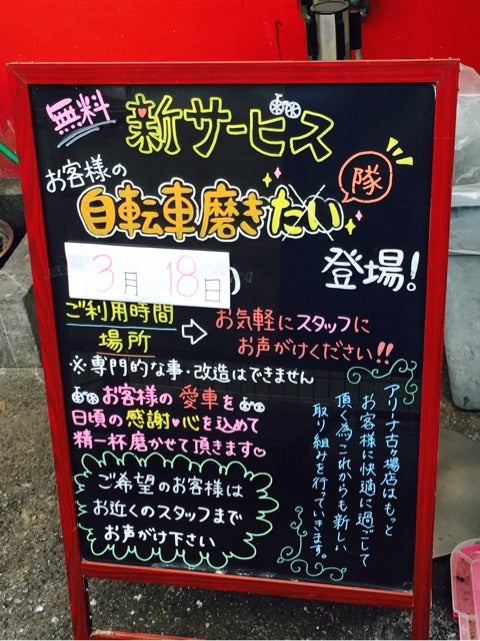 無料
新サービス
お客様の
自転車磨きたい
隊
登場!
3月 18日
)
ご利用時間
場所
⇨
お気軽にスタッフに
お声がけください!!
※専門的な事・改造はできません
お客様の愛車を
日頃の感謝♥心を込めて
精一杯磨かせて頂きます♡
ご希望のお客様は
お近くのスタッフまで
お声がけ下さい
アリーナ古ヶ場店はもっと
お客様に快適に過ごして
頂く為これからも新しい
取り組みを行っていきます。